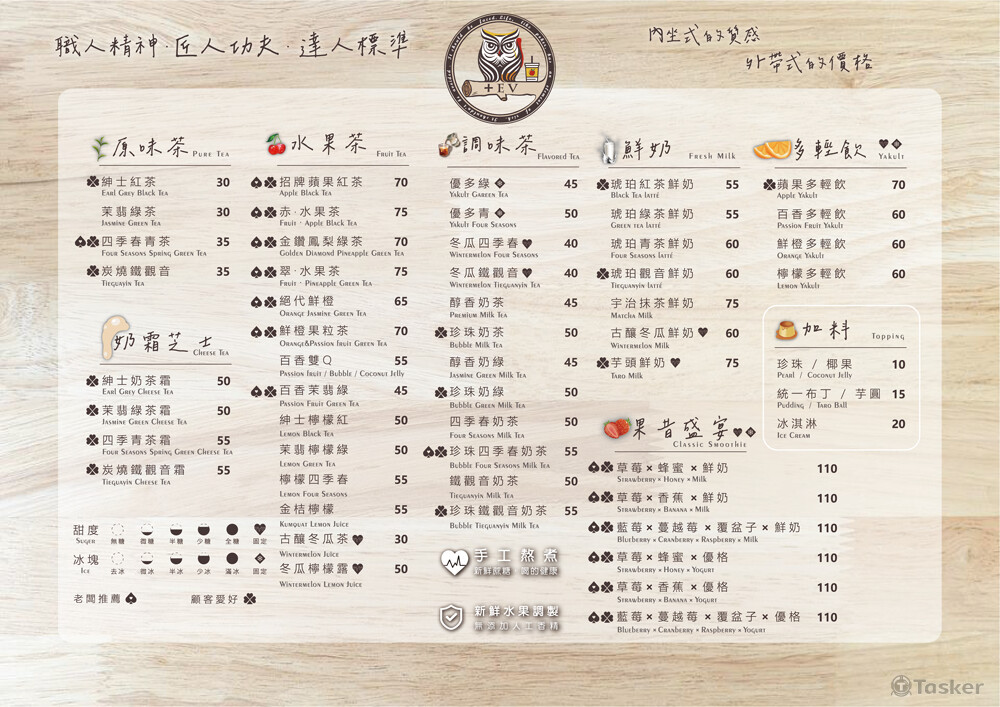 職人精神·匠人功夫·達人標準
+EV
內坐式的質感
外帶式的價格
原味茶 Pure Tea
紳士紅茶 30
Earl Grey Black Tea
茉翡綠茶 30
Jasmine Green Tea
四季春青茶 35
Four Seasons Spring Green Tea
炭燒鐵觀音 35
Tieguayin Tea
奶霜芝士
Cheese Tea
紳士奶茶霜 50
Earl Grey Cheese Tea
茉翡綠茶霜 50
Jasmine Green Cheese Tea
四季青茶霜 55
Four Seasons Spring Green Cheese Tea
炭燒鐵觀音霜 55
Tieguayin Cheese Tea
甜度
Suger
無糖 微糖 半糖 少糖 全糖 固定
冰塊
Ice
去冰 微冰 半冰 少冰 滿冰 固定
老闆推薦 顧客愛好
水果茶 Fruit Tea
招牌蘋果紅茶 70
Apple Black Tea
赤·水果茶 75
Fruit · Apple Black Tea
金鑽鳳梨綠茶 70
Golden Diamond Pineapple Green Tea
翠·水果茶 75
Fruit · Pineapple Green Tea
絕代鮮橙 65
Orange Jasmine Green Tea
鮮橙果粒茶 70
Orange&Passion fruit Green Tea
百香雙Q 55
Passion fruit / Bubble / Coconut Jelly
百香茉翡綠 45
Passion Fruit Green Tea
紳士檸檬紅 50
Lemon Black Tea
茉翡檸檬綠 50
Lemon Green Tea
檸檬四季春 55
Lemon Four Seasons
金桔檸檬 55
Kumquat Lemon Juice
古釀冬瓜茶 30
Wintermelon Juice
冬瓜檸檬露 50
Wintermelon Lemon Juice
調味茶 Flavored Tea
優多綠 45
Yakult Gareen Tea
優多青 50
Yakult Four Seasons
冬瓜四季春 40
Wintermelon Four Seasons
冬瓜鐵觀音 40
Wintermelon Tieguanyin Tea
醇香奶茶 45
Premium Milk Tea
珍珠奶茶 50
Bubble Milk Tea
醇香奶綠 45
Jasmine Green Milk Tea
珍珠奶綠 50
Bubble Green Milk Tea
四季春奶茶 50
Four Seasons Milk Tea
珍珠四季春奶茶 55
Bubble Four Seasons Milk Tea
鐵觀音奶茶 50
Tieguanyin Milk Tea
珍珠鐵觀音奶茶 55
Bubble Tieguanyin Milk Tea
手工熬煮
新鮮蔗糖 喝的健康
新鮮水果調製
無添加人工香精
鮮奶 Fresh Milk
琥珀紅茶鮮奶 55
Black Tea latté
琥珀綠茶鮮奶 55
Green tea latté
琥珀青茶鮮奶 60
Four Seasons latté
琥珀觀音鮮奶 60
Tieguanyin latté
宇治抹茶鮮奶 75
Matcha Milk
古釀冬瓜鮮奶 60
Wintermelon Milk
芋頭鮮奶 75
Taro Milk
多輕飲 Yakult
蘋果多輕飲 70
Apple Yakult
百香多輕飲 60
Passion Fruit Yakult
鮮橙多輕飲 60
Orange Yakult
檸檬多輕飲 60
Lemon Yakult
加料 Topping
珍珠 / 椰果 10
Pearl / Coconut Jelly
統一布丁 / 芋圓 15
Pudding / Taro Ball
冰淇淋 20
Ice Cream
果昔盛宴
Classic Smoothie
草莓×蜂蜜×鮮奶 110
Strawberry × Honey × Milk
草莓×香蕉×鮮奶 110
Strawberry × Banana × Milk
藍莓×蔓越莓×覆盆子×鮮奶 110
Blueberry × Cranberry × Raspberry × Milk
草莓×蜂蜜×優格 110
Strawberry × Honey × Yogurt
草莓×香蕉×優格 110
Strawberry × Banana × Yogurt
藍莓×蔓越莓×覆盆子×優格 110
Blueberry × Cranberry × Raspberry × Yogurt
Tasker